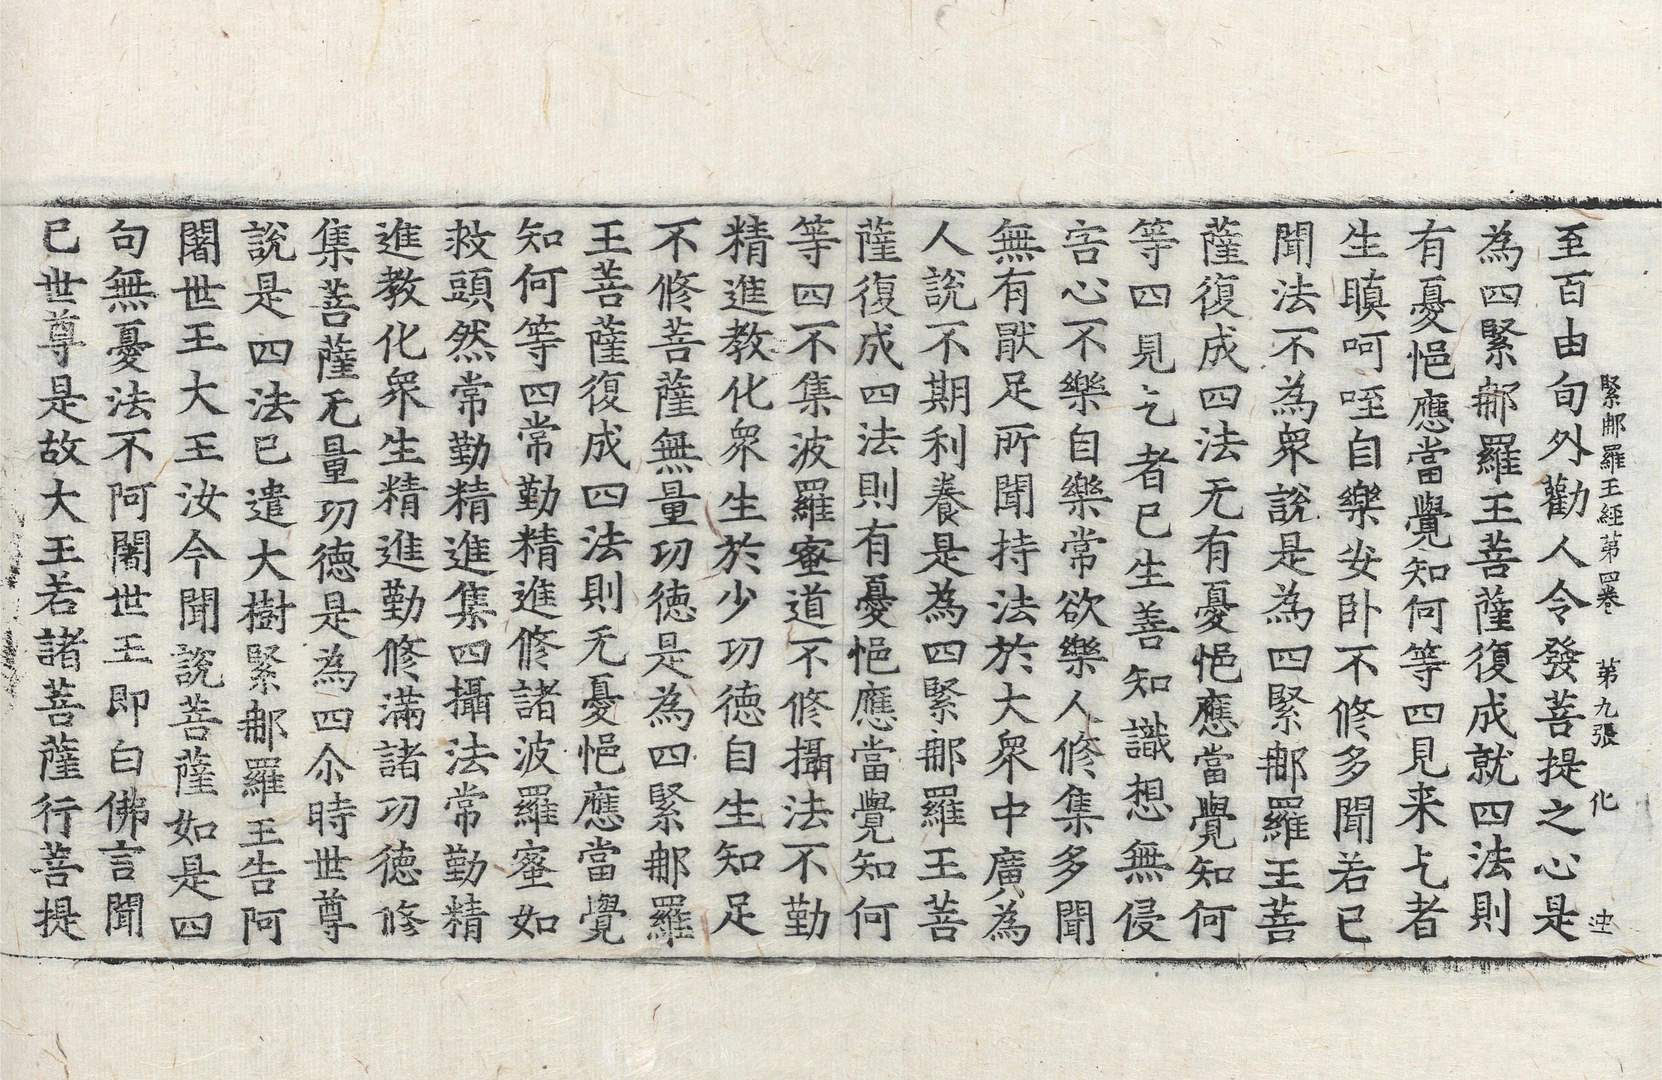 緊𨚗羅王經第四卷　第九張　化
至百由旬外勸人令發菩提之心是
為四緊𨚗羅王菩薩復成就四法則
有憂悒應當覺知何等四見来乞者
生瞋呵咥自樂安卧不修多聞若已
聞法不為衆說是為四緊𨚗羅王菩
薩復成四法无有憂悒應當覺知何
等四見乞者已生善知識想無侵
害心不樂自樂常欲樂人修集多聞
無有厭足所聞持法於大衆中廣為
人說不期利養是為四緊𨚗羅王菩
薩復成四法則有憂悒應當覺知何
等四不集波羅蜜道不修攝法不勤
精進教化衆生於少功德自生知足
不修菩薩無量功德是為四緊𨚗羅
王菩薩復成四法則无憂悒應當覺
知何等四常勤精進修諸波羅蜜如
救頭然常勤精進集四攝法常勤精
進教化衆生精進勤修滿諸功德修
集菩薩无量功德是為四尒時世尊
說是四法已遣大樹緊𨚗羅王告阿
闍世王大王汝今聞說菩薩如是四
句無憂法不阿闍世王即白佛言聞
已世尊是故大王若諸菩薩行菩提